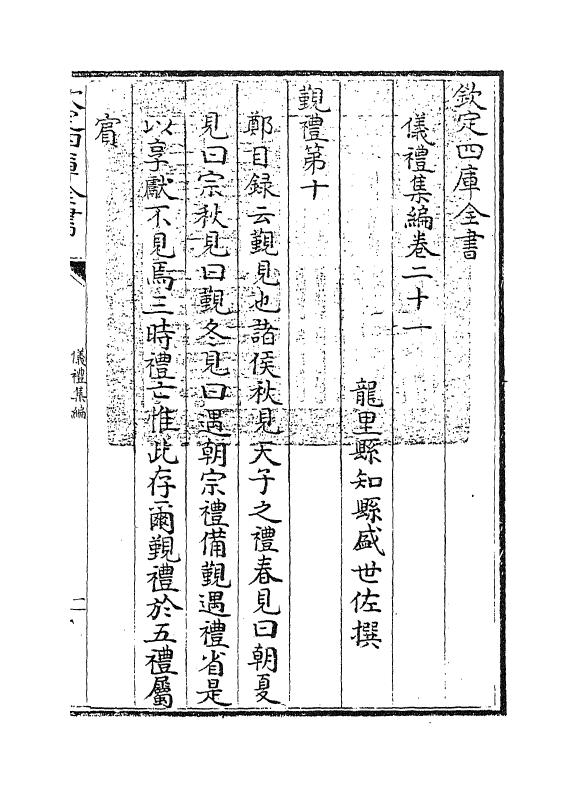 欽定四庫全書
儀禮集編卷二十一
龍里縣知縣盛世佐撰
覲禮第十
鄭目録云覲見也諸侯秋見天子之禮春見曰朝夏
見曰宗秋見曰覲冬見曰遇朝宗禮備覲遇禮省是
以享獻不見焉三時禮亡惟此存爾覲禮於五禮屬
賓
欽定四庫全書
儀禮集編